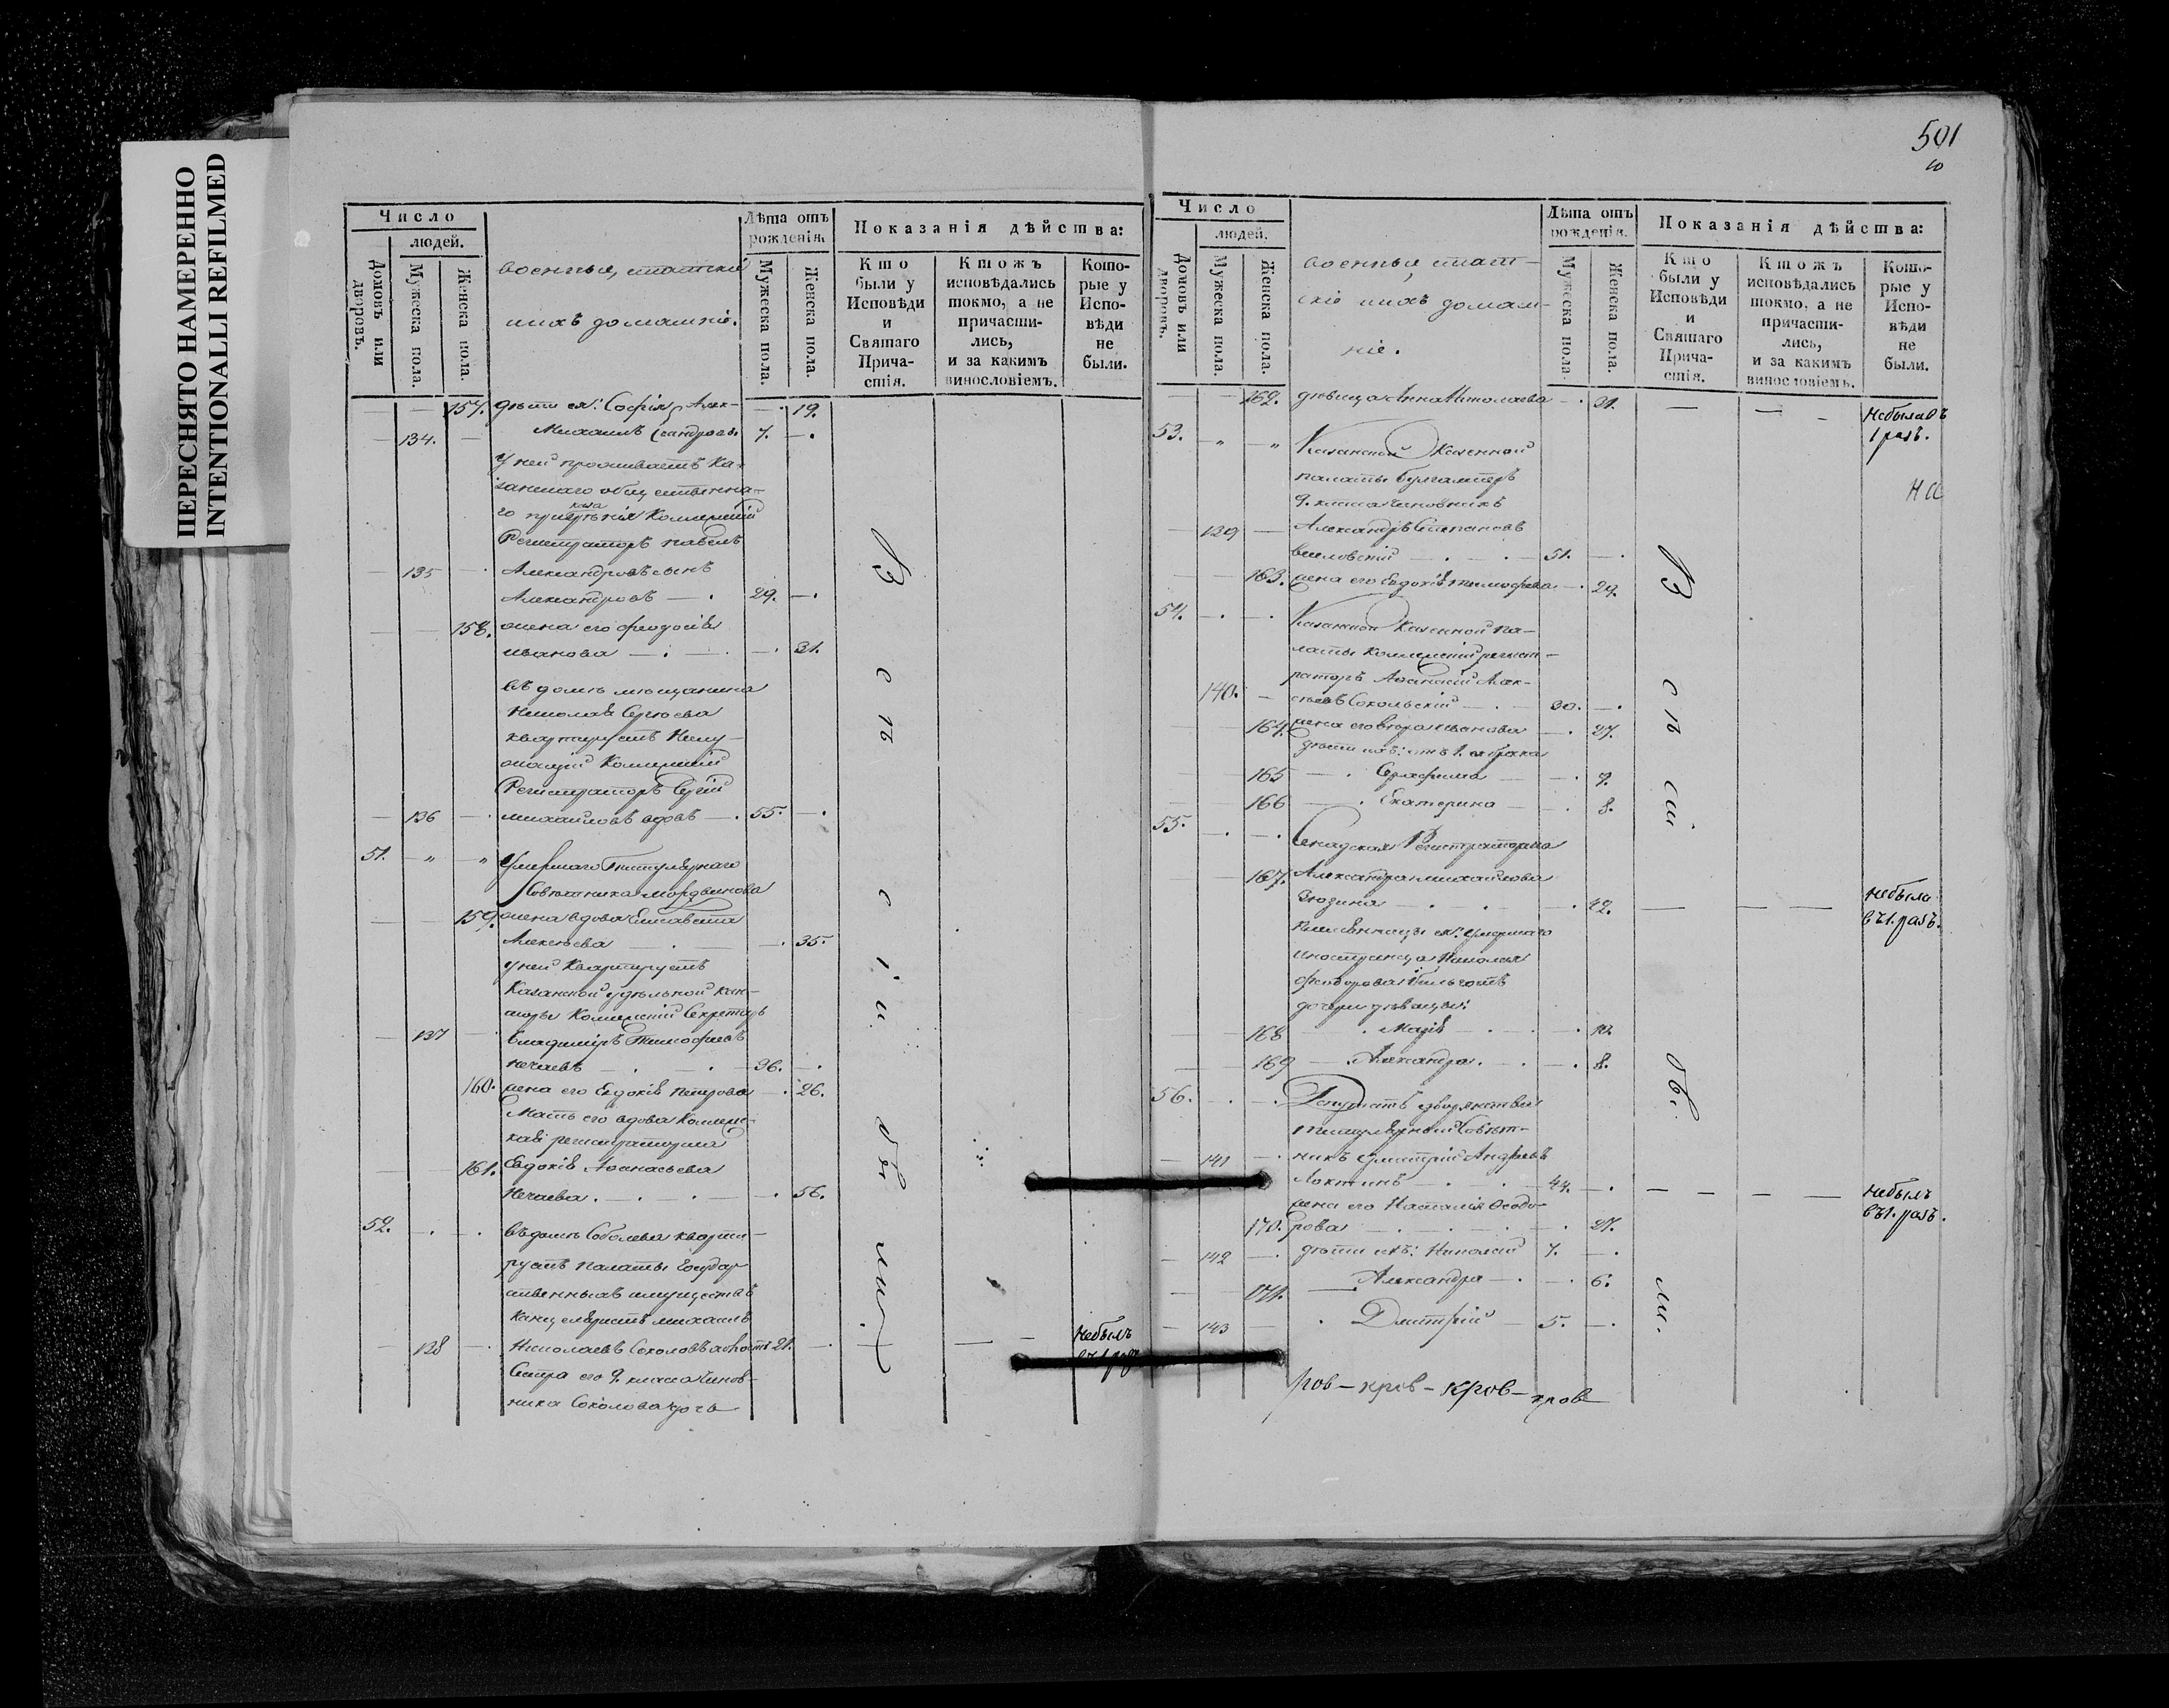 ПЕРЕСНЯТО НАМЕРЕННО
INTENTIONALLI REFILMED
Число
людей.
Домовъ или дворовъ.
Мужеска пола.
Женска пола.
военные, статскіе
и ихъ домашніе.
Лѣта отъ рожденія.
Мужеска пола.
Женска пола.
Показанія дѣйства:
Кто были у Исповѣди и Святаго Причастія.
Ктожъ исповѣдались токмо, а не причастились, и за какимъ винословіемъ.
Которые у Исповѣди не были.
157. дѣти ея: Софія Алек- 19.
134. Михаилъ сандровы 7.
У ней проживаетъ Ка-
занскаго общественна-
го призрѣнія Коллежскій
Регистраторъ Павелъ
135 Александровъ сынъ
Александровъ 29.
158. жена его Феодосія
Иванова 21.
Въ домѣ мѣщанина
Николая Сергѣева
квартируетъ Неслу-
жащій Коллежскій
Регистраторъ Сергій
136 Михайловъ вдовъ 55.
51. Умершаго Титулярнаго
Совѣтника Мордвинова
159. жена вдова Елисавета
Алексѣева 35.
у ней квартируетъ
Казанской удѣльной кон-
торы Коллежскій Секретарь
137 Владиміръ Тимофеевъ
Нечаевъ 36.
160. жена его Евдокія Петрова 26.
Мать его вдова Коллеж-
ская регистраторша
161. Евдокія Афанасьева
Нечаева 56.
52. Въ домѣ Соболева кварти-
руетъ Палаты Государ
ственныхъ имуществъ
Канцеляристъ Михаилъ
138 Николаевъ Соколовъ холостъ 21. Небылъ
въ 1 разъ
Сестра его 9. класса Чинов-
ника Соколова дочь
всѣ сіи
были
501
10
Число
людей.
Домовъ или дворовъ.
Мужеска пола.
Женска пола.
военные, стат-
скіе и ихъ домаш-
ніе.
Лѣта отъ рожденія.
Мужеска пола.
Женска пола.
Показанія дѣйства:
Кто были у Исповѣди и Святаго Причастія.
Ктожъ исповѣдались токмо, а не причастились, и за какимъ винословіемъ.
Которые у Исповѣди не были.
162. дѣвица Анна Николаева 31. Небыла въ
1 разъ.
53. Казанской Казенной
палаты бухгалтеръ
9. класса чиновникъ
139 Александръ Степановъ
51.
163. жена его Евдокія Тимофеева 29.
54. Казанской Казенной па-
латы Коллежскій регист-
раторъ Афанасій Алек-
140. сѣевъ Сокольскій 30.
164. жена его Вера Иванова 27.
дѣти ихъ: отъ 1. ея брака
165 Серафима 9.
166 Екатерина 8.
55. Сенатская Регистраторша
167. Александра Михайлова
42. Небыла
въ 1. разъ.
умершаго
иностранца Николая
дочери дѣвицы:
168 Марія 10.
169 Александра 8.
56. Депутатъ дворянства
титулярный Совѣт-
141 никъ Дмитрій Андреевъ
Локтинъ 44. Небылъ
въ 1. разъ.
жена его Наталія Феодо-
170. рова 27.
142 дѣти ихъ: Николай 7.
171. Александра 6.
143 Дмитрій 5.